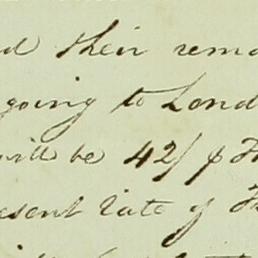 d their rema
going to Lond
will be 42/ p
esent rate of